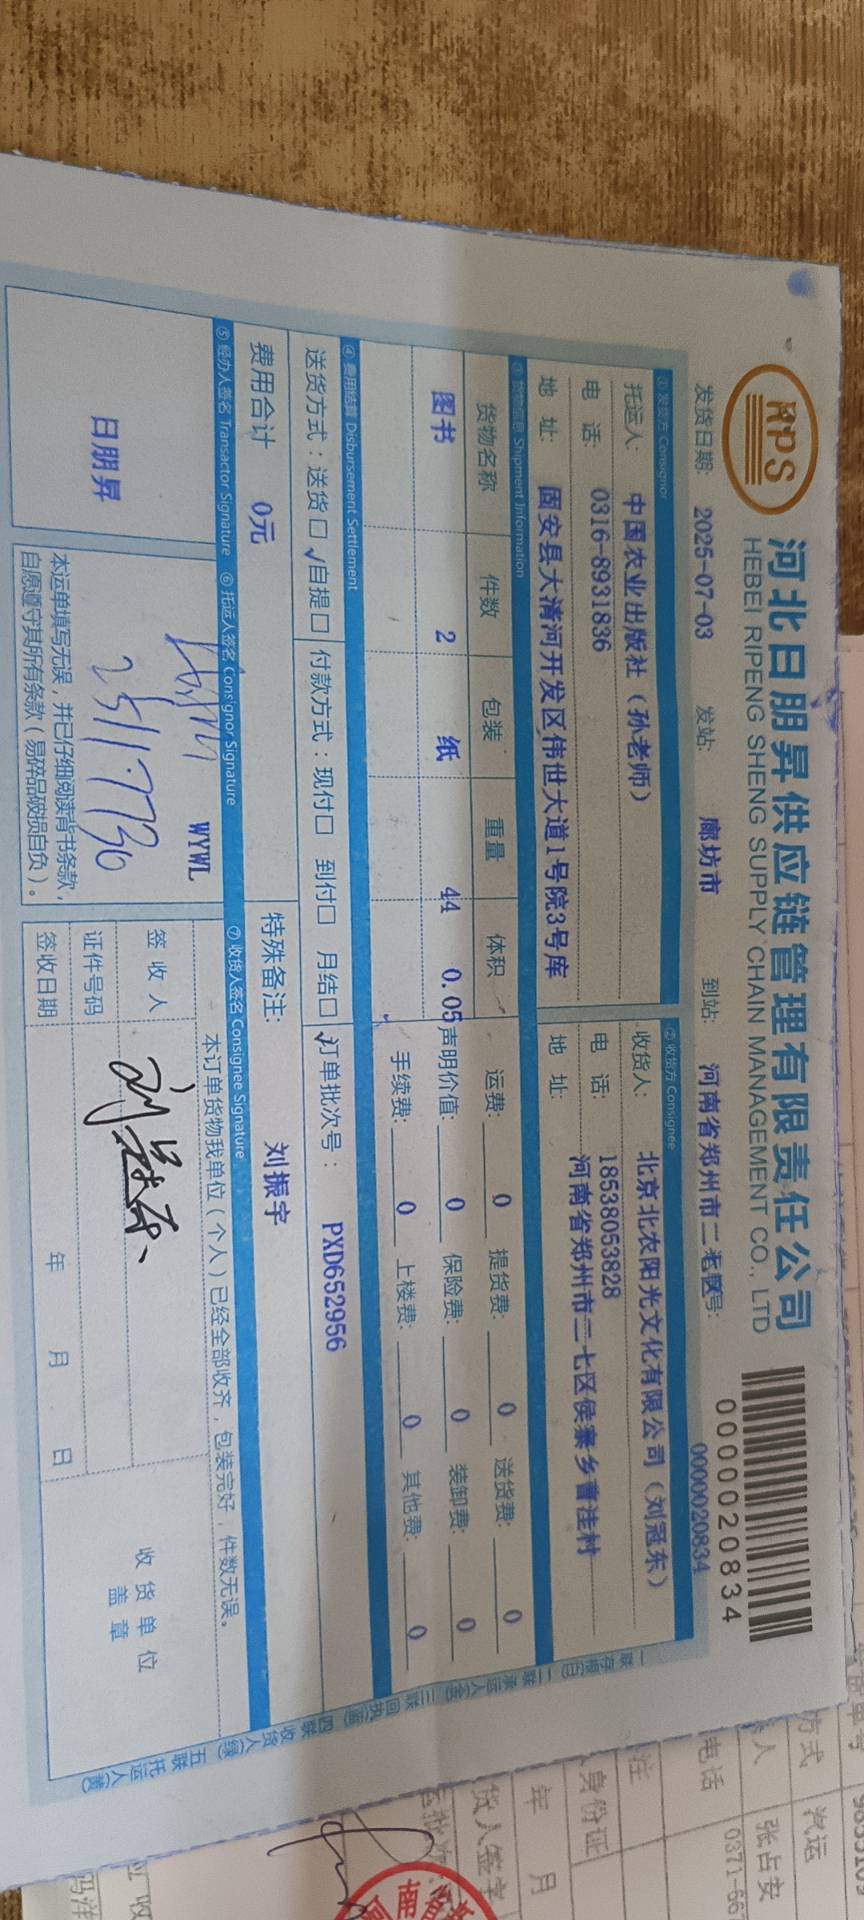 RPS
河北日朋昇供应链管理有限责任公司
HEBEI RIPENG SHENG SUPPLY CHAIN MANAGEMENT CO., LTD
0000020834
发货日期: 2025-07-03 发站: 廊坊市 到站: 河南省郑州市二七区 号: 0000020834
① 发货方 Consignor
② 收货方 Consignee
托运人: 中国农业出版社（孙老师）
收货人: 北京北农阳光文化有限公司（刘冠东）
电 话: 0316-8931836
电 话: 18538053828
地 址: 固安县大清河开发区伟世大道1号院3号库
地 址: 河南省郑州市二七区侯寨乡曹洼村
③ 货物信息 Shipment Information
货物名称 件数 包装 重量 体积
运费: 0 提货费: 0 送货费: 0
图书 2 纸 44 0.05
声明价值: 0 保险费: 0 装卸费: 0
手续费: 0 上楼费: 0 其他费: 0
④ 费用结算 Disbursement Settlement
送货方式：送货□ √自提□ 付款方式：现付□ 到付□ 月结□ √订单批次号： PXD652956
费用合计 0元
特殊备注: 刘振宇
⑤ 经办人签名 Transactor Signature ⑥ 托运人签名 Consignor Signature ⑦ 收货人签名 Consignee Signature
日朋昇
WYWL
本运单填写无误，并已仔细阅读背书条款，
自愿遵守其所有条款（易碎品破损自负）。
本订单货物我单位（个人）已经全部收齐，包装完好，件数无误。
签 收 人
证件号码
签收日期 年 月 日
收 货 单 位
盖 章
一联存根(白) 二联承运人(金) 三联回执(蓝) 四联收货人(绿) 五联托运人(黄)
方式 汽运
人 张占安
电话 0371-667
注
身份证
年 月
货人签字